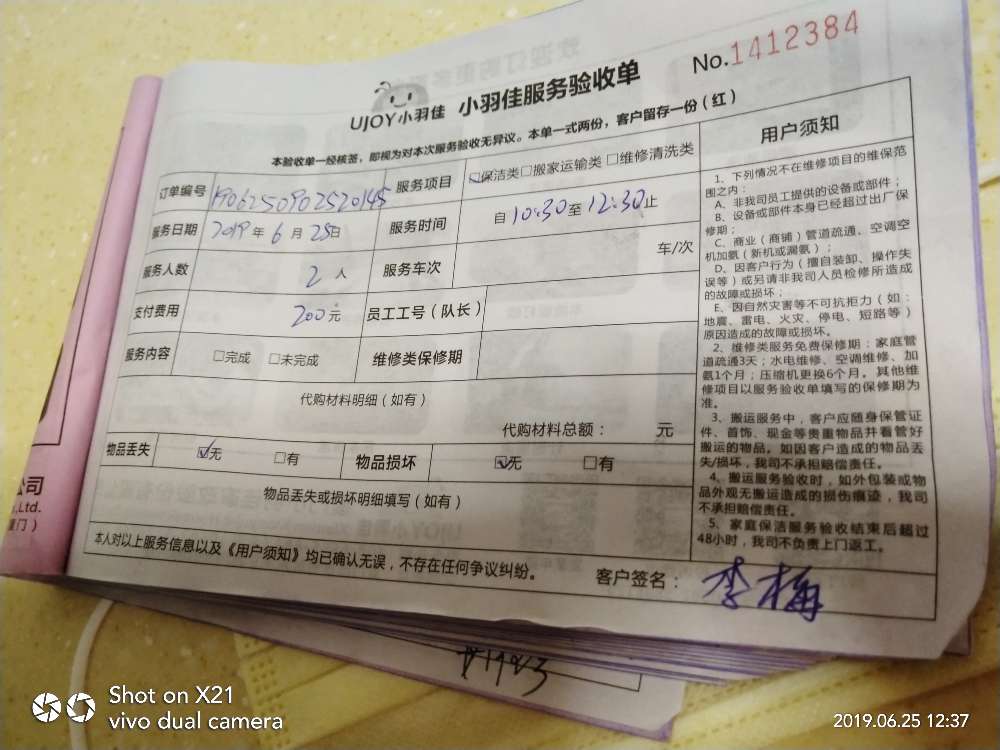 No.1412384
UJOY小羽佳 小羽佳服务验收单
本验收单一经核签，即视为对本次服务验收无异议。本单一式两份，客户留存一份（红）
订单编号 服务项目 ☑保洁类□搬家运输类□维修清洗类
服务日期 2019年6月25日 服务时间 自10:30至12:30止
服务人数 2人 服务车次 车/次
支付费用 200元 员工工号（队长）
服务内容 □完成 □未完成 维修类保修期
代购材料明细（如有）
代购材料总额： 元
物品丢失 ☑无 □有 物品损坏 ☑无 □有
物品丢失或损坏明细填写（如有）
本人对以上服务信息以及《用户须知》均已确认无误，不存在任何争议纠纷。
客户签名： 李梅
用户须知
1、下列情况不在维修项目的维保范
围之内：
A、非我司员工提供的设备或部件；
B、设备或部件本身已经超过出厂保
修期；
C、商业（商铺）管道疏通、空调空
机加氨（新机或漏氨）；
D、因客户行为（擅自装卸、操作失
误等）或另请非我司人员检修所造成
的故障或损坏；
E、因自然灾害等不可抗拒力（如：
地震、雷电、火灾、停电、短路等）
原因造成的故障或损坏。
2、维修类服务免费保修期：家庭管
道疏通3天；水电维修、空调维修、加
氨1个月；压缩机更换6个月。其他维
修项目以服务验收单填写的保修期为
准。
3、搬运服务中，客户应随身保管证
件、首饰、现金等贵重物品并看管好
搬运的物品。如因客户造成的物品丢
失/损坏，我司不承担赔偿责任。
4、搬运服务验收时，如外包装或物
品外观无搬运造成的损伤痕迹，我司
不承担赔偿责任。
5、家庭保洁服务验收结束后超过
48小时，我司不负责上门返工。
公司
Ltd.
厦门）
Shot on X21
vivo dual camera
2019.06.25 12:37